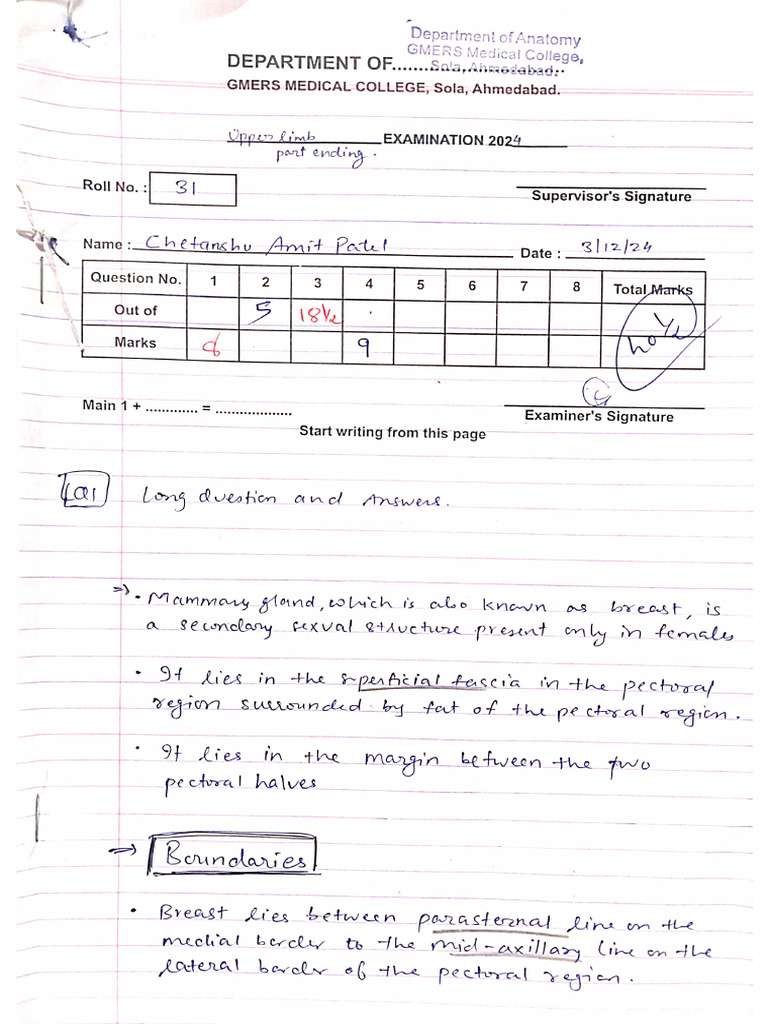 Department of Anatomy
GMERS Medical College,
Sola, Ahmedabad.
DEPARTMENT OF..............................
GMERS MEDICAL COLLEGE, Sola, Ahmedabad.
Upper limb EXAMINATION 2024
part ending.
Roll No. : 31
Supervisor's Signature
Name : Chetanshu Amit Patel Date : 3/12/24
Question No. 1 2 3 4 5 6 7 8 Total Marks
Out of 5 18½
Marks 6 9
Main 1 + ............. = ...................
Examiner's Signature
Start writing from this page
Long Question and Answers.
⇒ • Mammary gland, which is also known as breast, is
a secondary sexual structure present only in females
• It lies in the superficial fascia in the pectoral
region surrounded by fat of the pectoral region.
• It lies in the margin between the two
pectoral halves
⇒ Boundaries
• Breast lies between parasternal line on the
medial border to the mid-axillary line on the
lateral border of the pectoral region.